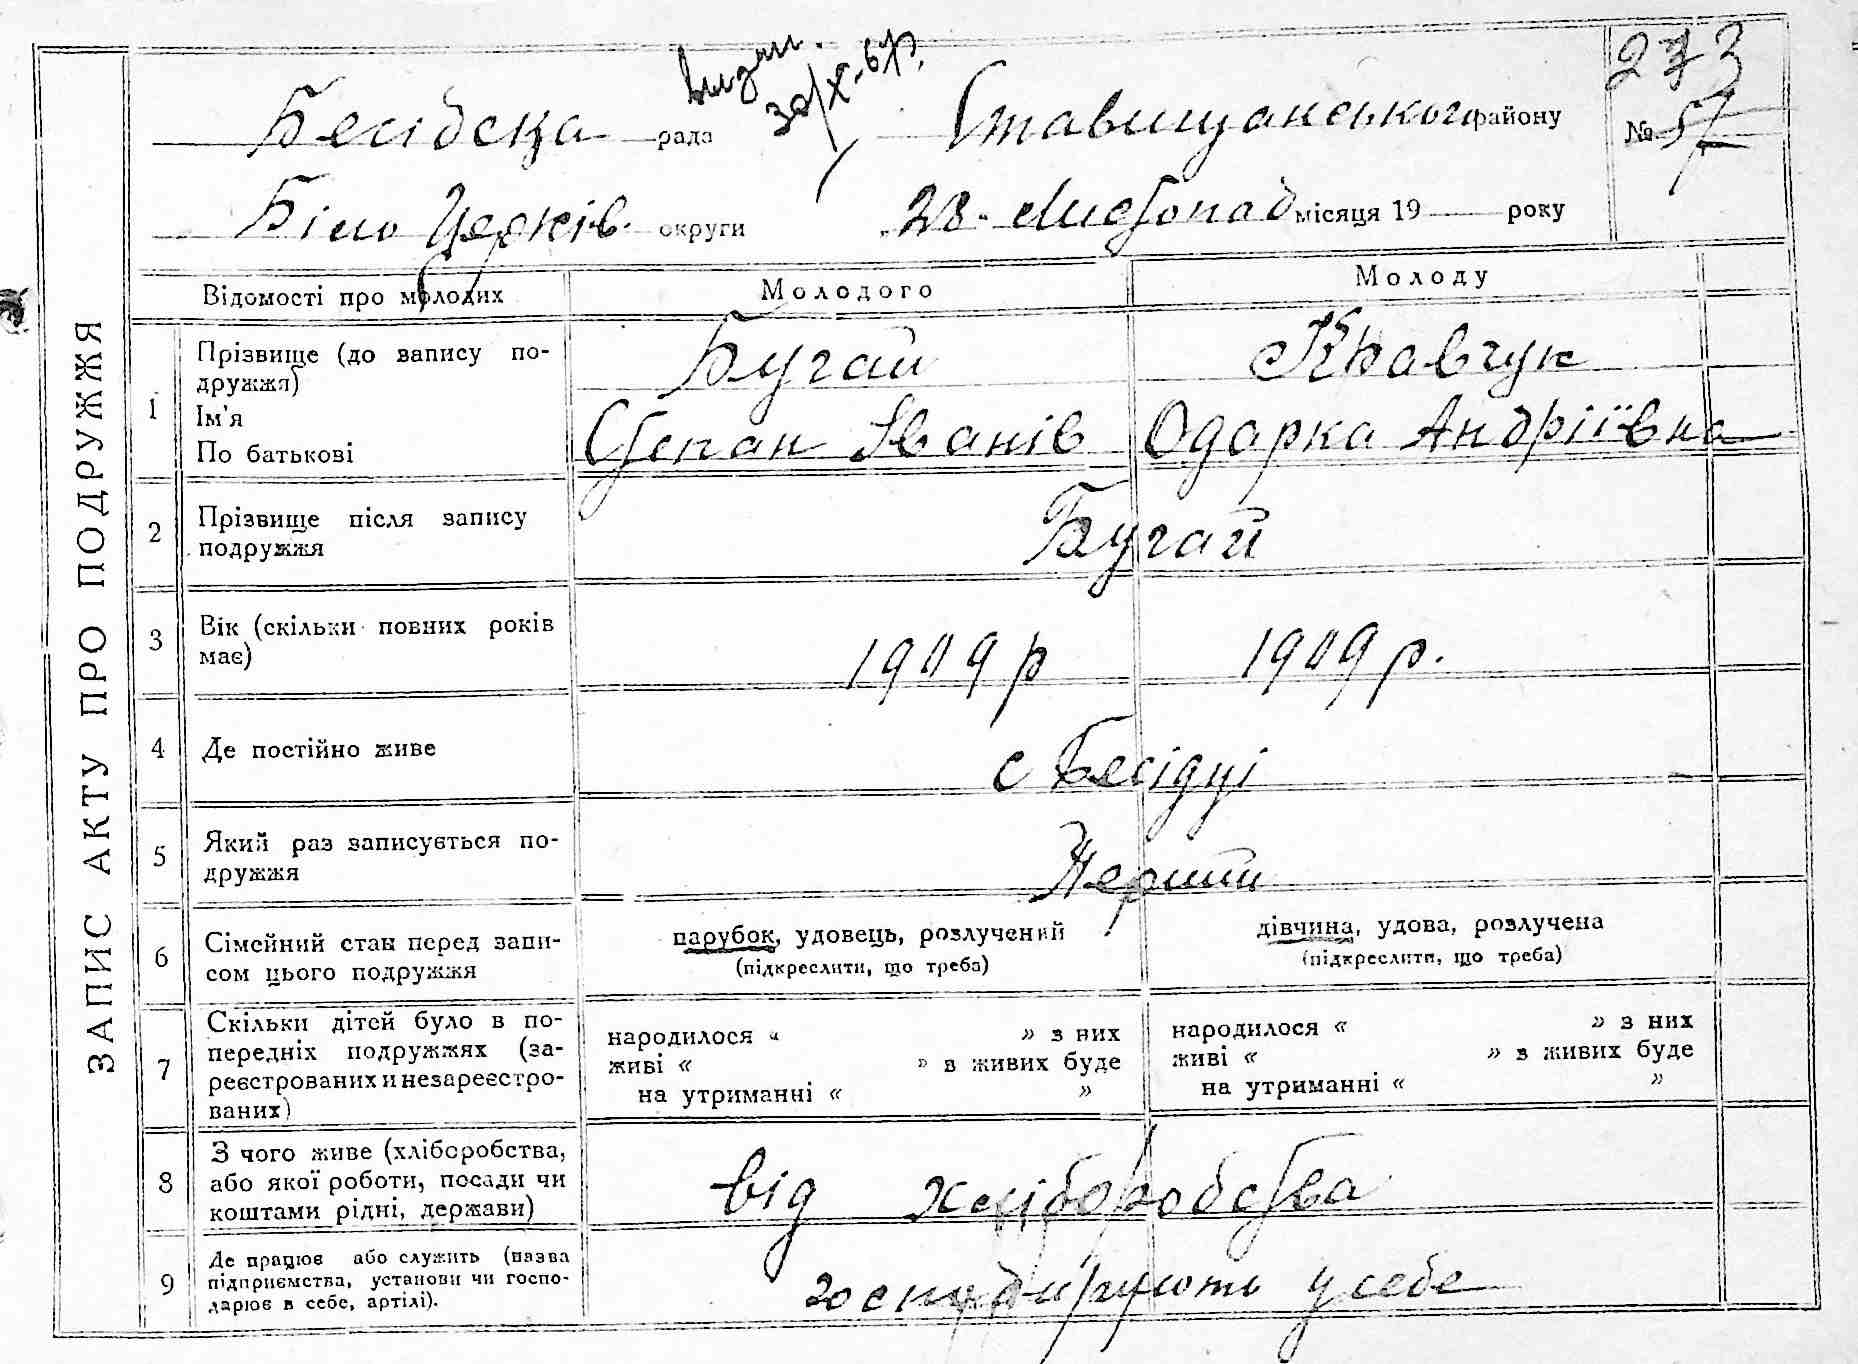 273
видан.
30/X-61р.
Бесідська рада Ставищанського району № 57
Біло Церків. округи „28" Листопад місяця 19 року
ЗАПИС АКТУ ПРО ПОДРУЖЖЯ
Відомості про молодих Молодого Молоду
1 Прізвище (до запису по-
дружжя) Бугай Кравчук
Ім'я
По батькові Степан Іванів Одарка Андріївна
2 Прізвище після запису
подружжя Бугай
3 Вік (скільки повних років
має) 1909 р 1909 р.
4 Де постійно живе с Бесідці
5 Який раз записується по-
дружжя Перший
6 Сімейний стан перед запи-
сом цього подружжя
парубок, удовець, розлучений
(підкреслити, що треба)
дівчина, удова, розлучена
(підкреслити, що треба)
7 Скільки дітей було в по-
передніх подружжях (за-
реєстрованих и незареєстро-
ваних)
народилося « » з них
живі « » з живих буде
на утриманні « »
народилося « » з них
живі « » з живих буде
на утриманні « »
8 З чого живе (хліборобства,
або якої роботи, посади чи
коштами рідні, держави) від хліборобства
9 Де працює або служить (назва
підприємства, установи чи госпо-
дарює в себе, артілі). господирують у себе